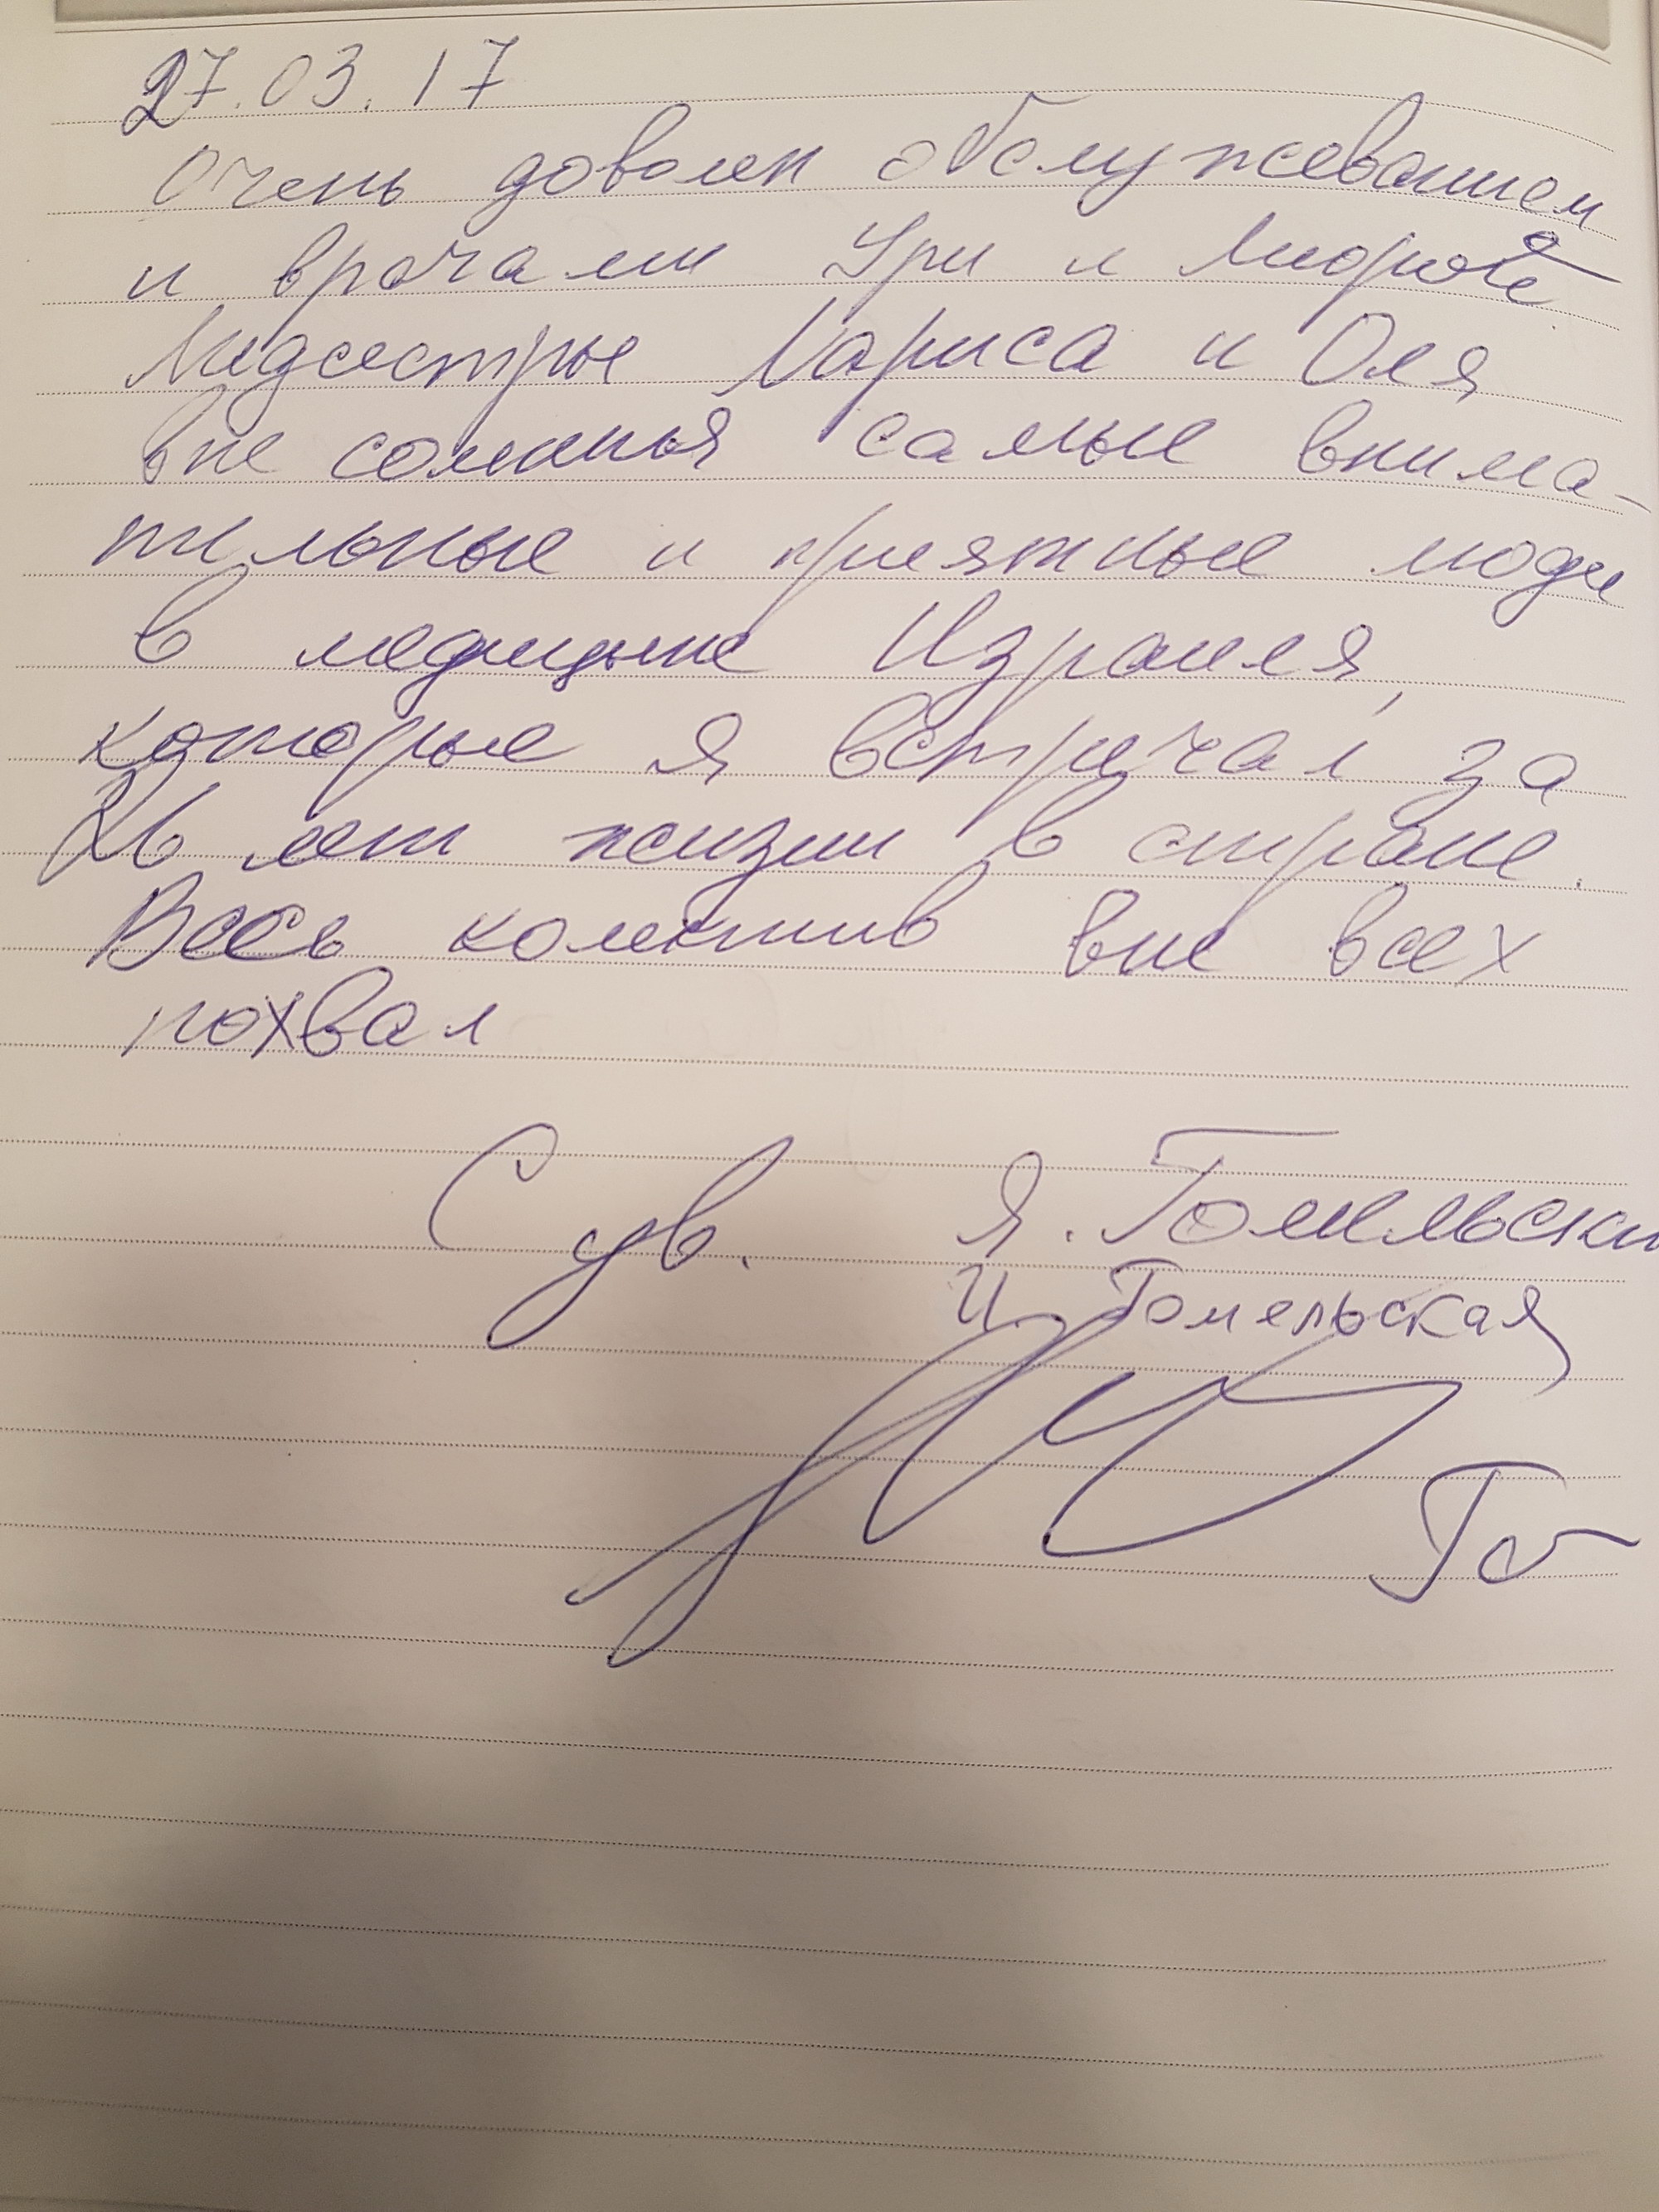 27.03.17
Очень доволен обслужеванием
и врачами Ури и
Медсестры Лариса и Оля
вне сомненья самые внима-
тельные и приятные люди
в медицыне Израиля,
которые я встречал за
26 лет жизни в стране.
Весь колектив вне всех
похвал
С ув. Я. Гомельски
И. Гомельская